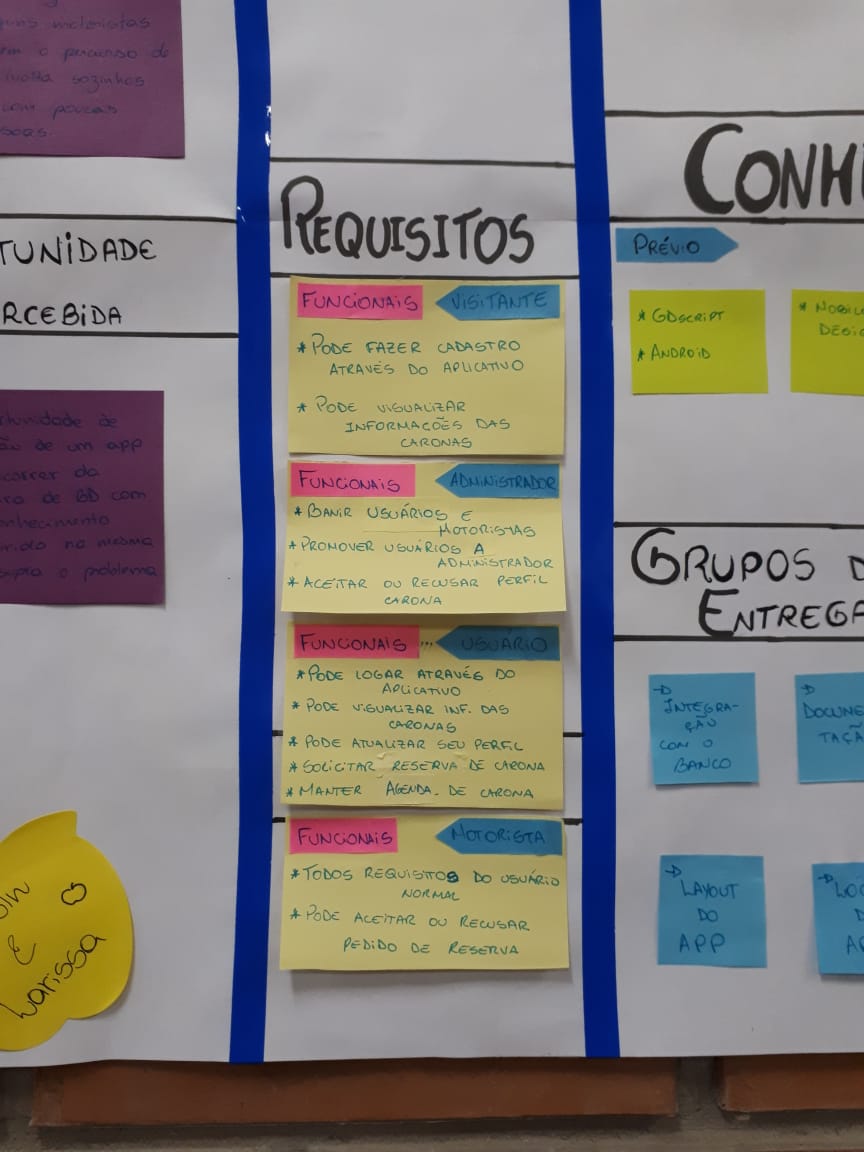 motoristas
o percurso de
sozinhos
com poucas
TUNIDADE
RCEBIDA
de
de um app
da
de BD com
na mesma
o problema
E
Larissa
REQUISITOS
FUNCIONAIS VISITANTE
* PODE FAZER CADASTRO
ATRAVÉS DO APLICATIVO
* PODE VISUALIZAR
INFORMAÇÕES DAS
CARONAS
FUNCIONAIS ADMINISTRADOR
* BANIR USUÁRIOS E
MOTORISTAS
* PROMOVER USUÁRIOS A
ADMINISTRADOR
* ACEITAR OU RECUSAR PERFIL
CARONA
FUNCIONAIS ... USUÁRIO
* PODE LOGAR ATRAVÉS DO
APLICATIVO
* PODE VISUALIZAR INF. DAS
CARONAS
* PODE ATUALIZAR SEU PERFIL
* SOLICITAR RESERVA DE CARONA
* MANTER AGENDA. DE CARONA
FUNCIONAIS MOTORISTA
* TODOS REQUISITOS DO USUÁRIO
NORMAL
* PODE ACEITAR OU RECUSAR
PEDIDO DE RESERVA
CONHI
PRÉVIO
* GDSCRIPT
* ANDROID
* MOBIL
DESIG
GRUPOS D
ENTREGA
→ INTEGRA-
ÇÃO
COM O
BANCO
→ DOCUMEN
TAÇÃ
→ LAYOUT
DO
APP
→ LÓG
D
AP